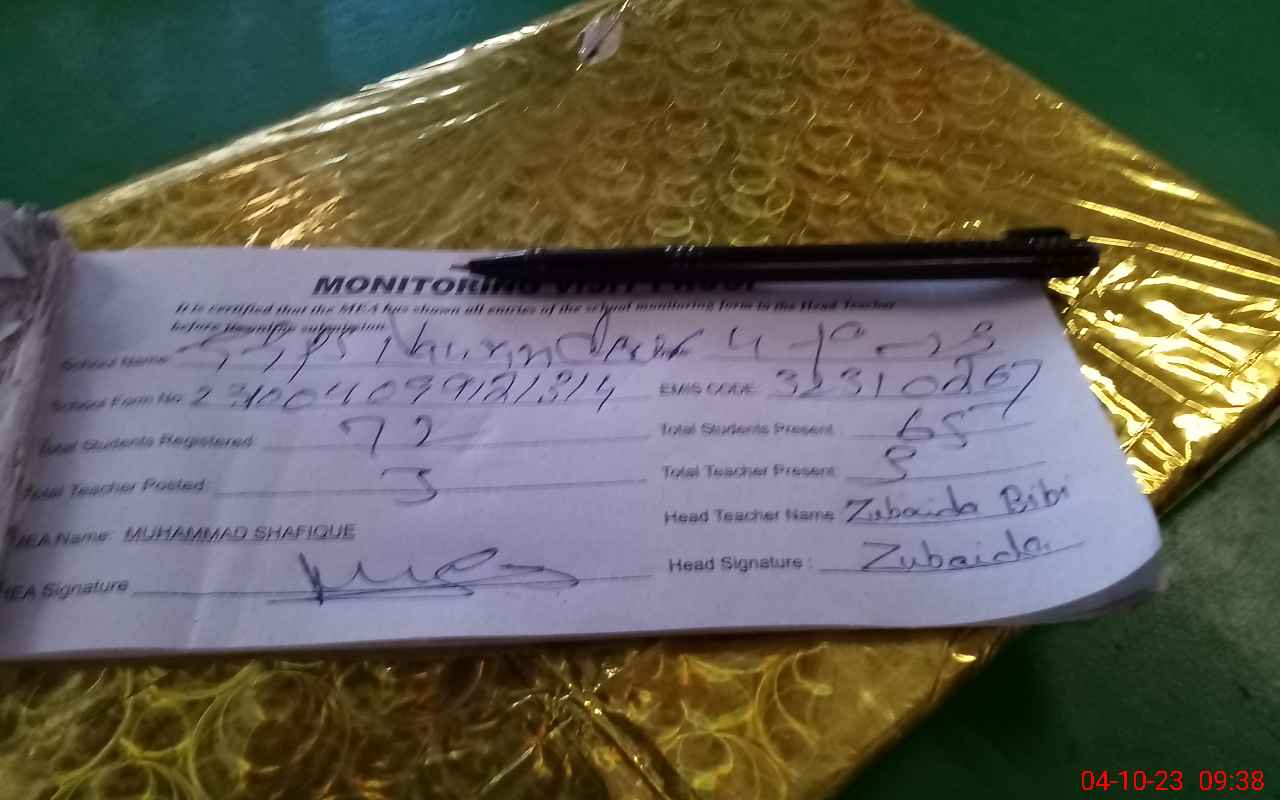 MONITORING VISIT PROOF
It is certified that the MEA has shown all entries of the school monitoring form to the Head Teacher
before submission
School Name: 4-10-23
School Form No: EMIS CODE 32310267
Total Students Registered: 72 Total Students Present 65
Total Teacher Posted: 3 Total Teacher Present
MEA Name: MUHAMMAD SHAFIQUE Head Teacher Name Zubaida Bibi
MEA Signature Head Signature : Zubaida
04-10-23 09:38